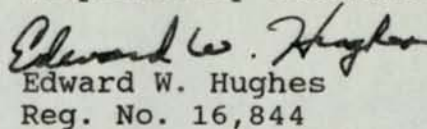 Edward W. Hughes
Edward W. Hughes
Reg. No. 16,844